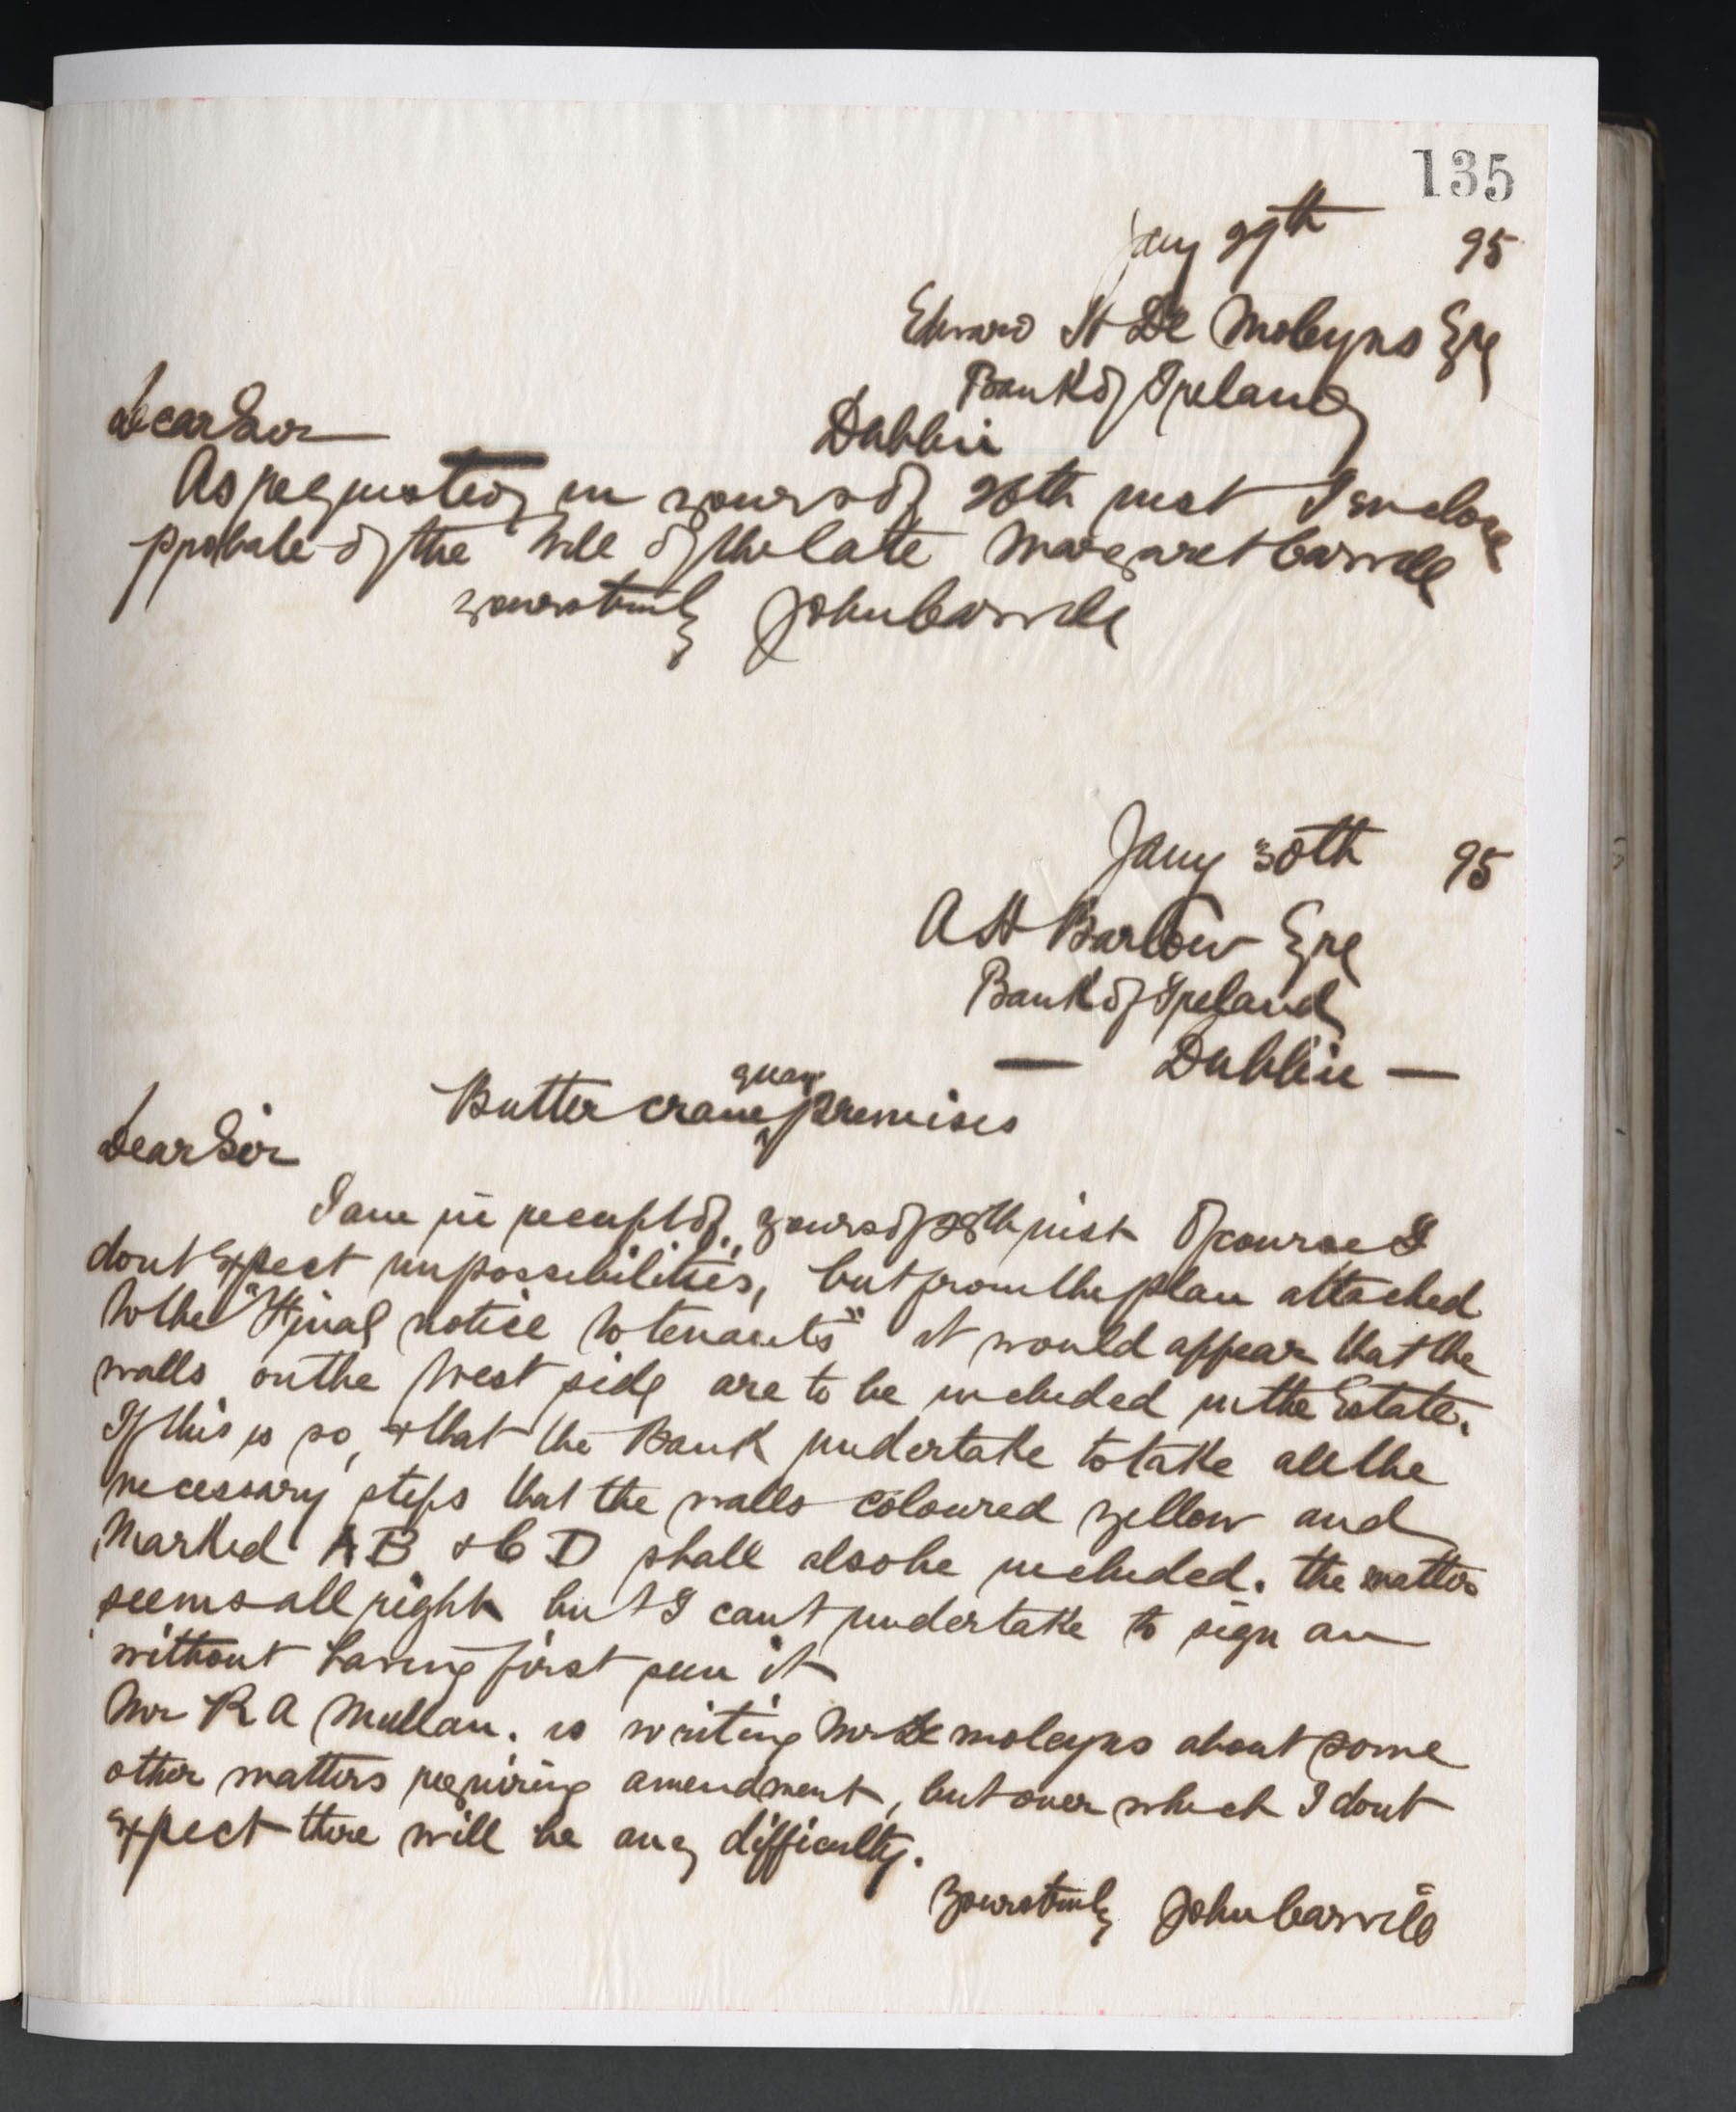 135
Jany 29th 95
Edward H De Moleyns Esq
Bank of Ireland
Dublin
Dear Sir
As requested in yours of 26th inst I enclose
probate of the Will of the late Margaret Carvill
yours truly John Carvill
Jany 30th 95
A H Barlow Esq
Bank of Ireland
— Dublin —
quay
Butter crane premises
Dear Sir
I am in receipt of yours of 28th inst Of course I
dont expect impossibilities, but from the plan attached
to the "Final notice to tenants" it would appear that the
walls on the West side are to be included in the Estate.
If this is so, & that the Bank undertake to take all the
necessary steps that the walls coloured yellow and
Marked A B & C D shall also be included. the matter
seems all right but I cant undertake to sign an
without having first seen it
Mr R A Mullan. is writing Mr De moleyns about some
other matters requiring amendment, but over which I dont
expect there will be any difficulty.
Yours truly John Carvill